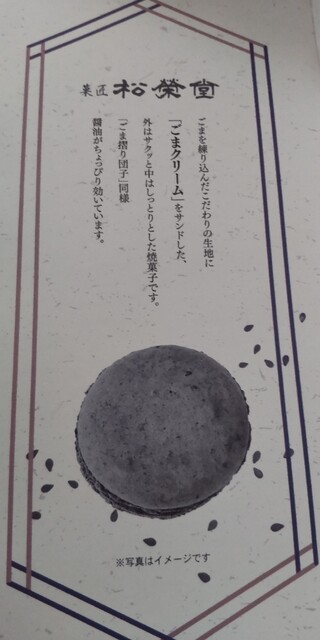 菓匠 松榮堂
ごまを練り込んだこだわりの生地に
「ごまクリーム」をサンドした、
外はサクッと中はしっとりとした焼菓子です。
「ごま摺り団子」同様
醤油がちょっぴり効いています。
※写真はイメージです